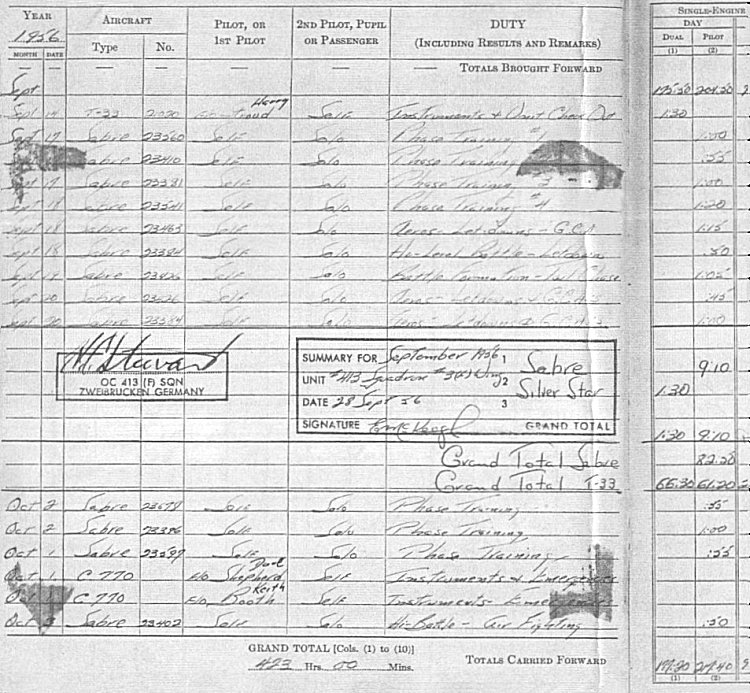 YEAR AIRCRAFT PILOT, OR 2ND PILOT, PUPIL DUTY SINGLE-ENGINE
1956 1ST PILOT OR PASSENGER (INCLUDING RESULTS AND REMARKS) DAY
MONTH DATE Type No. DUAL PILOT
(1) (2)
— — — — — — — TOTALS BROUGHT FORWARD
Sept
Sept 14 T-33 Henry Self Instruments & Unit Check Out 1:30
Sept 17 Sabre 23560 Self Solo Phase Training #1 1:00
Sabre 23410 Self Solo Phase Training :55
Sept 17 Sabre 23381 Self Solo Phase Training #3 1:00
Sept 18 Sabre 23541 Self Solo Phase Training #4 1:20
Sept 18 Sabre 23463 Self Solo Aeros - Letdowns - G.C.A 1:15
Sept 18 Sabre 23384 Self Solo Hi-Level Battle - Letdown :50
Sept 19 Sabre 23426 Self Solo Battle Formation - Tail Chase 1:05
Sept 20 Sabre Self Solo Aeros - Letdowns & G.C.A.'s :45
Sept 20 Sabre 23384 Self Solo Aeros - Letdowns & G.C.A.'s 1:00
OC 413 (F) SQN
ZWEIBRUCKEN GERMANY
SUMMARY FOR September 1956 1 Sabre 9:10
UNIT #413 Squadron #3(F) Wing 2 Silver Star 1:30
DATE 28 Sept 56 3
SIGNATURE GRAND TOTAL 1:30 9:10
Grand Total Sabre 22:20
Grand Total T-33 66:30 61:20
Oct 2 Sabre Self Solo Phase Training :55
Oct 2 Sabre 23386 Self Solo Phase Training 1:00
Oct 1 Sabre Self Solo Phase Training :55
Oct 1 C 770 F/O Shepherd Self Instruments & Emergencies
Oct 1 C 770 F/O Keith Booth Self Instruments Emergencies
Oct 3 Sabre 23402 Self Solo Hi-Battle - Air Fighting :50
GRAND TOTAL [Cols. (1) to (10)]
423 Hrs. 00 Mins. TOTALS CARRIED FORWARD
(1) (2)